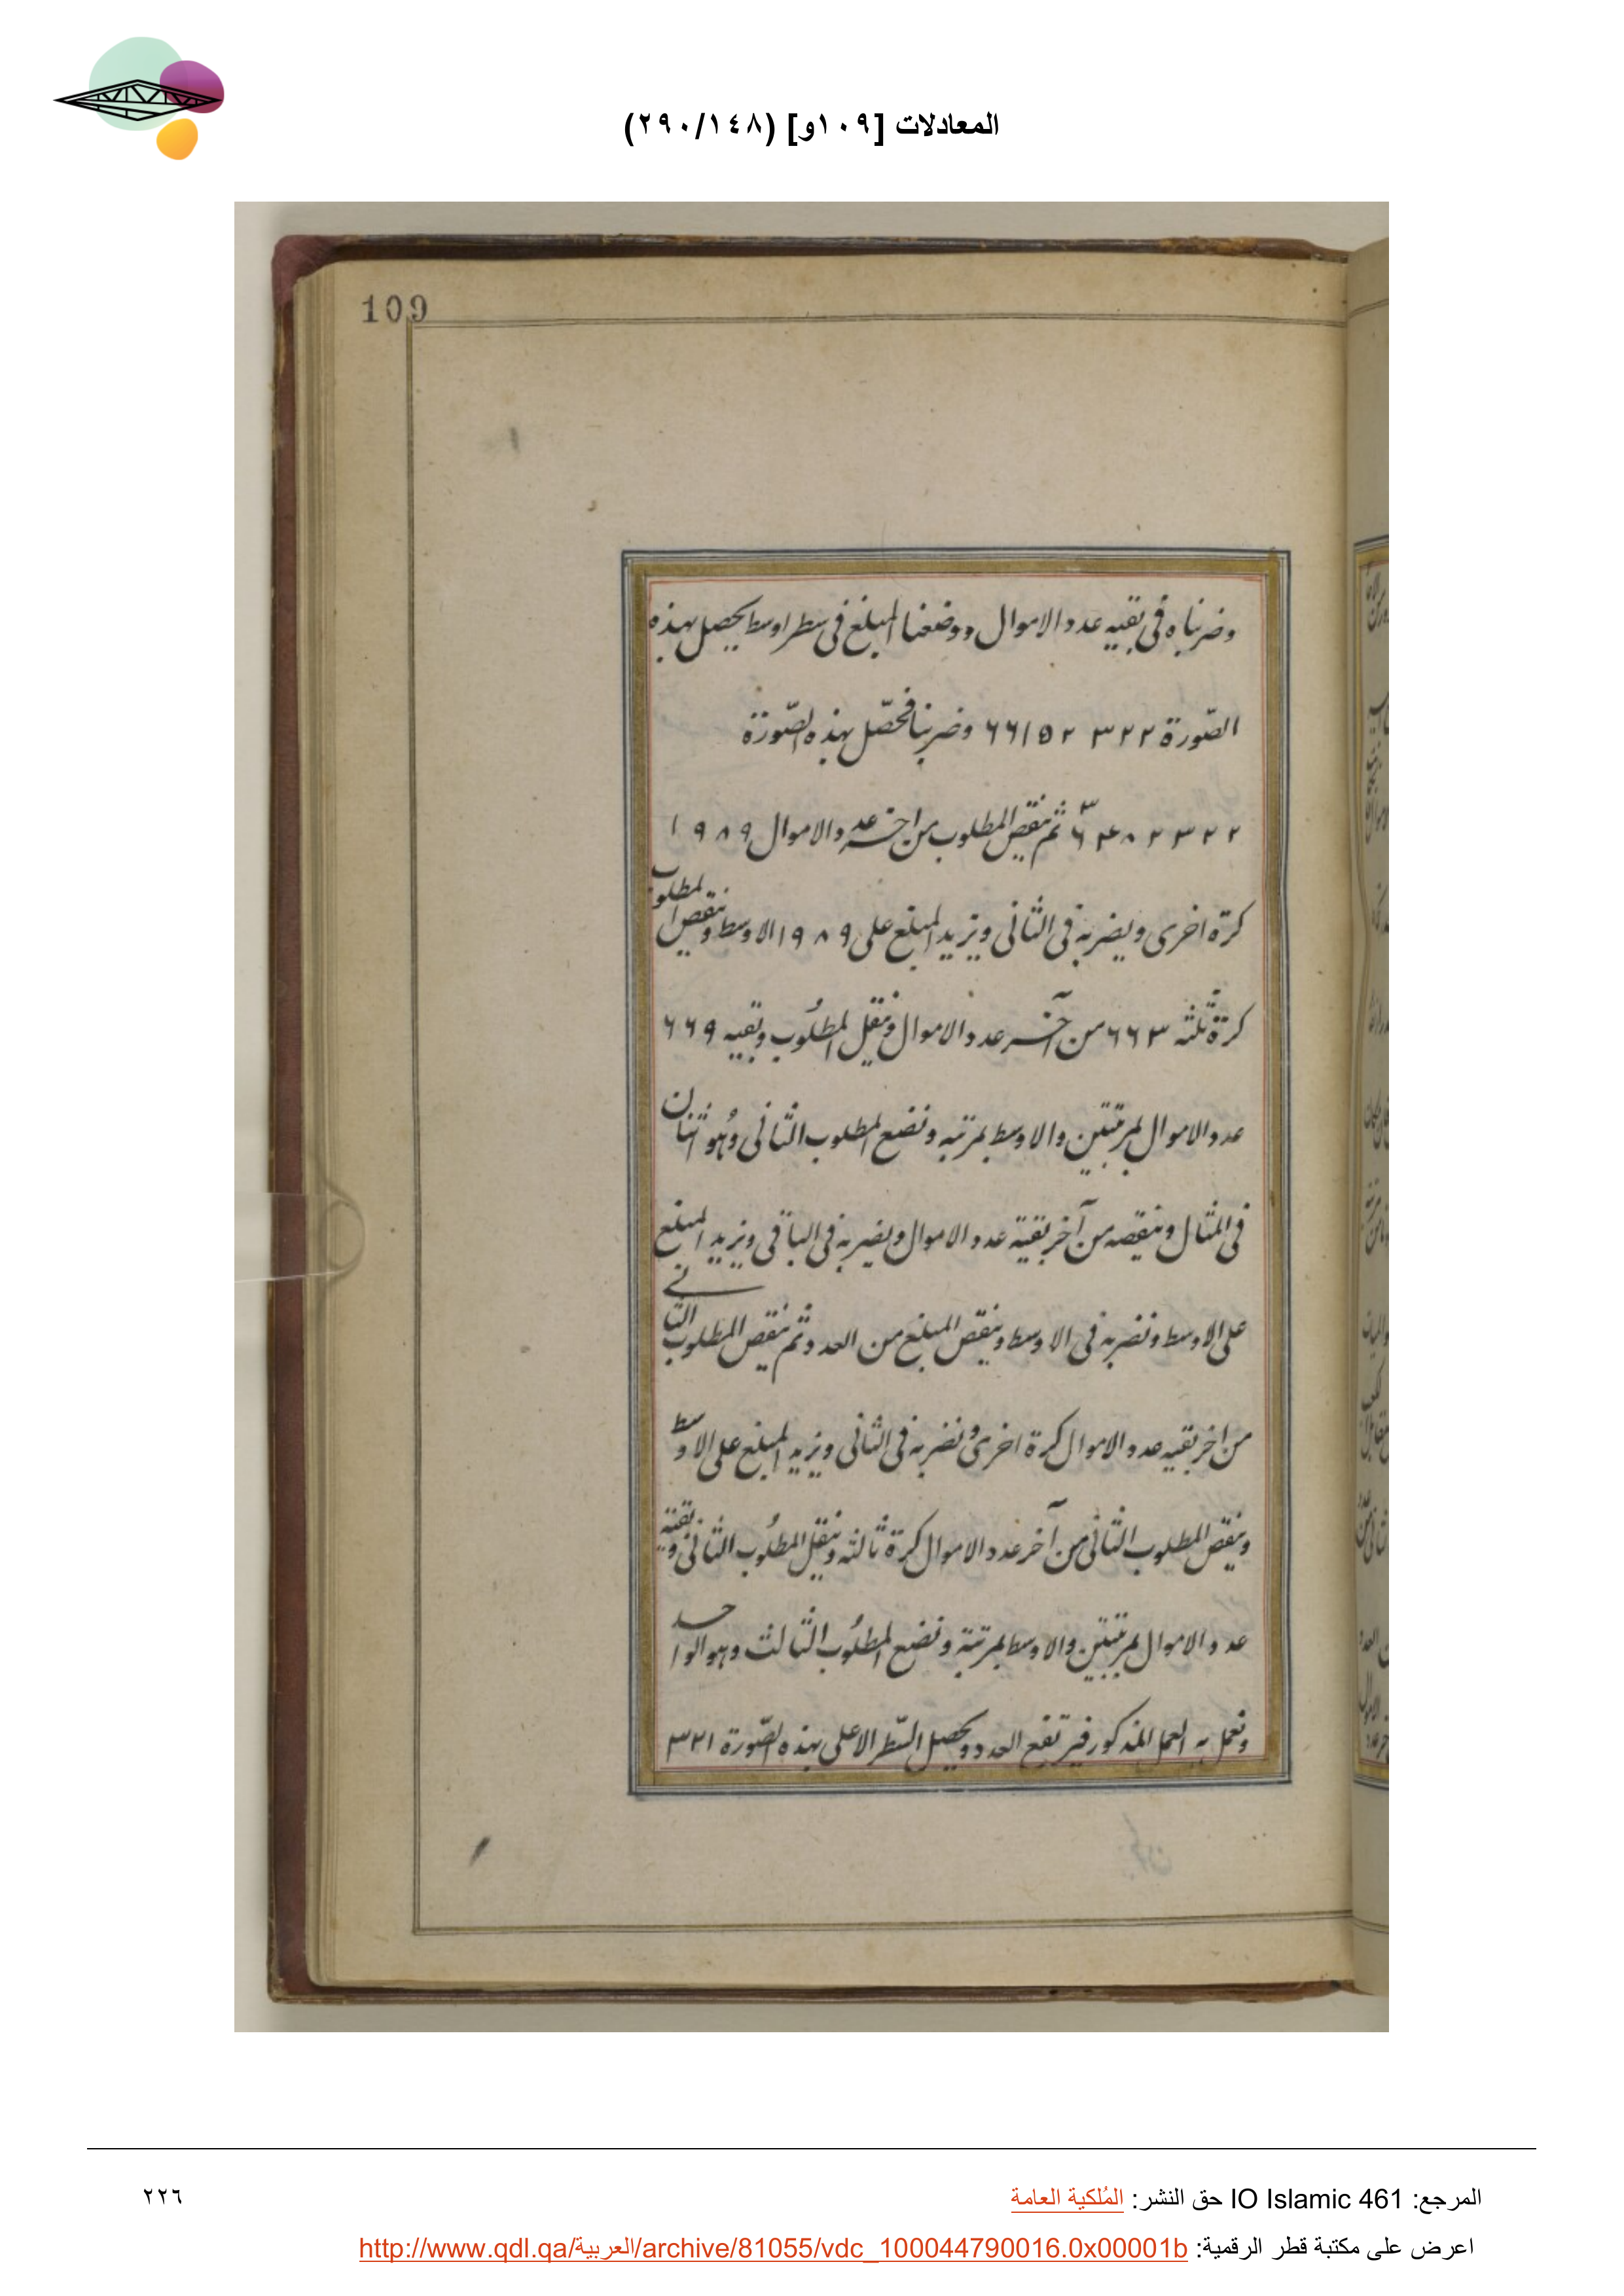 المعادلات [١٠٩و] (٢٩٠/١٤٨)
109
وضربناه فى بقيه عدد الاموال ووضعنا المبلغ فى سطر اوسط يحصل بهذه
الصّورة ٣٢٢ ٦٦١٥٢ وضربنا فحصّل بهذه الصّورة
ثم ننقص المطلوب من اخر عدد الاموال ١٩٨٩
كرة اخرى ويضربه فى الثانى ويزيد المبلغ على ١٩٨٩ الاوسط وننقص المطلوب
كرة ثلثه ٦٦٣ من آخر عدد الاموال وننقل المطلُوب وبقيه ٦٦٩
عدد الاموال بمرتبتين والاوسط بمرتبه ونضع المطلوب الثانى وهُو اثنان
فى المثال وينقصه من آخر بقية عدد الاموال ويضربه فى الباقى ويزيد المبلغ
على الاوسط ونضربه فى الاوسط وينقص المبلغ من العدد ثم ننقص المطلوب الثانے
من اخر بقيه عدد الاموال كرة اخرى ونضربه فى الثانى ويزيد المبلغ على الاوسط
وينقص المطلوب الثانى من آخر عدد الاموال كرة ثالثه وننقل المطلُوب الثانى وبقية
عدد الاموال بمرتبتين والاوسط بمرتبة ونضع المطلُوب الثالث وهو الواحد
ونعمل به العمل المذكور فيرتفع العدد ويحصل السّطر الاعلى بهذه الصّورة ٣٢١
المرجع: IO Islamic 461 حق النشر: المُلكية العامة
٢٢٦
اعرض على مكتبة قطر الرقمية: http://www.qdl.qa/العربية/archive/81055/vdc_100044790016.0x00001b